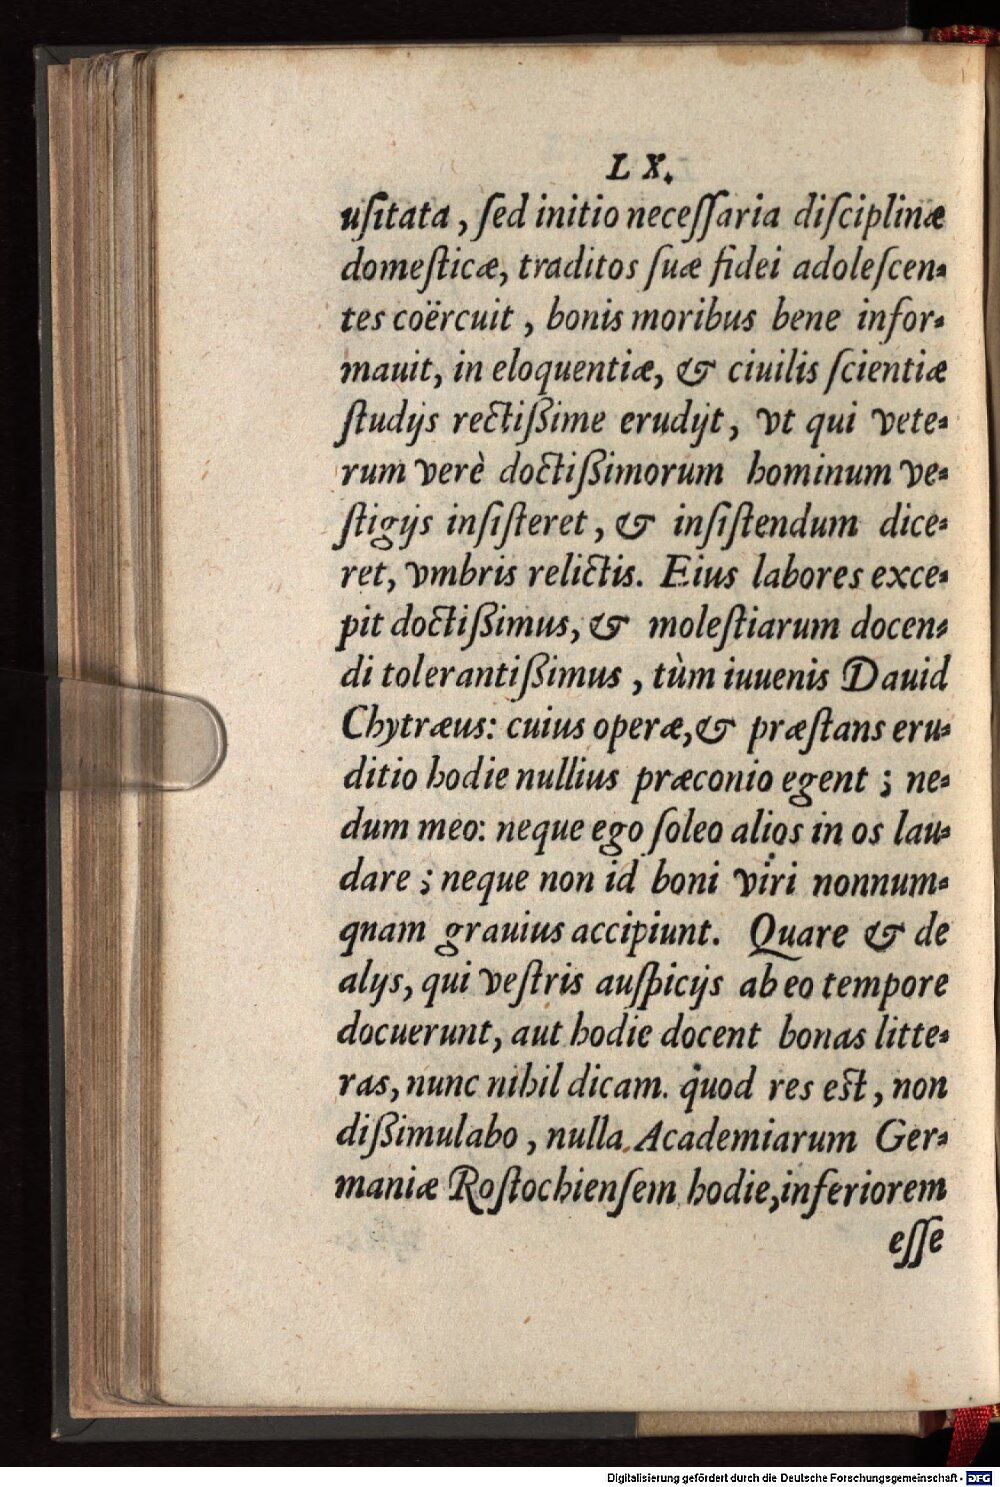 L X.
uſitata, ſed initio neceſſaria diſciplinæ
domeſticæ, traditos ſuæ fidei adoleſcen-
tes coërcuit, bonis moribus bene infor-
mauit, in eloquentiæ, & ciuilis ſcientiæ
ſtudijs rectißime erudijt, vt qui vete-
rum verè doctißimorum hominum ve-
ſtigijs inſiſteret, & inſiſtendum dice-
ret, vmbris relictis. Eius labores exce-
pit doctißimus, & moleſtiarum docen-
di tolerantißimus, tùm iuuenis Dauid
Chytræus: cuius operæ, & præſtans eru-
ditio hodie nullius præconio egent; ne-
dum meo: neque ego ſoleo alios in os lau-
dare; neque non id boni viri nonnum-
quam grauius accipiunt. Quare & de
alijs, qui veſtris auſpicijs ab eo tempore
docuerunt, aut hodie docent bonas litte-
ras, nunc nihil dicam. quod res eſt, non
dißimulabo, nulla Academiarum Ger-
maniæ Roſtochienſem hodie, inferiorem
eſſe
Digitalisierung gefördert durch die Deutsche Forschungsgemeinschaft - DFG